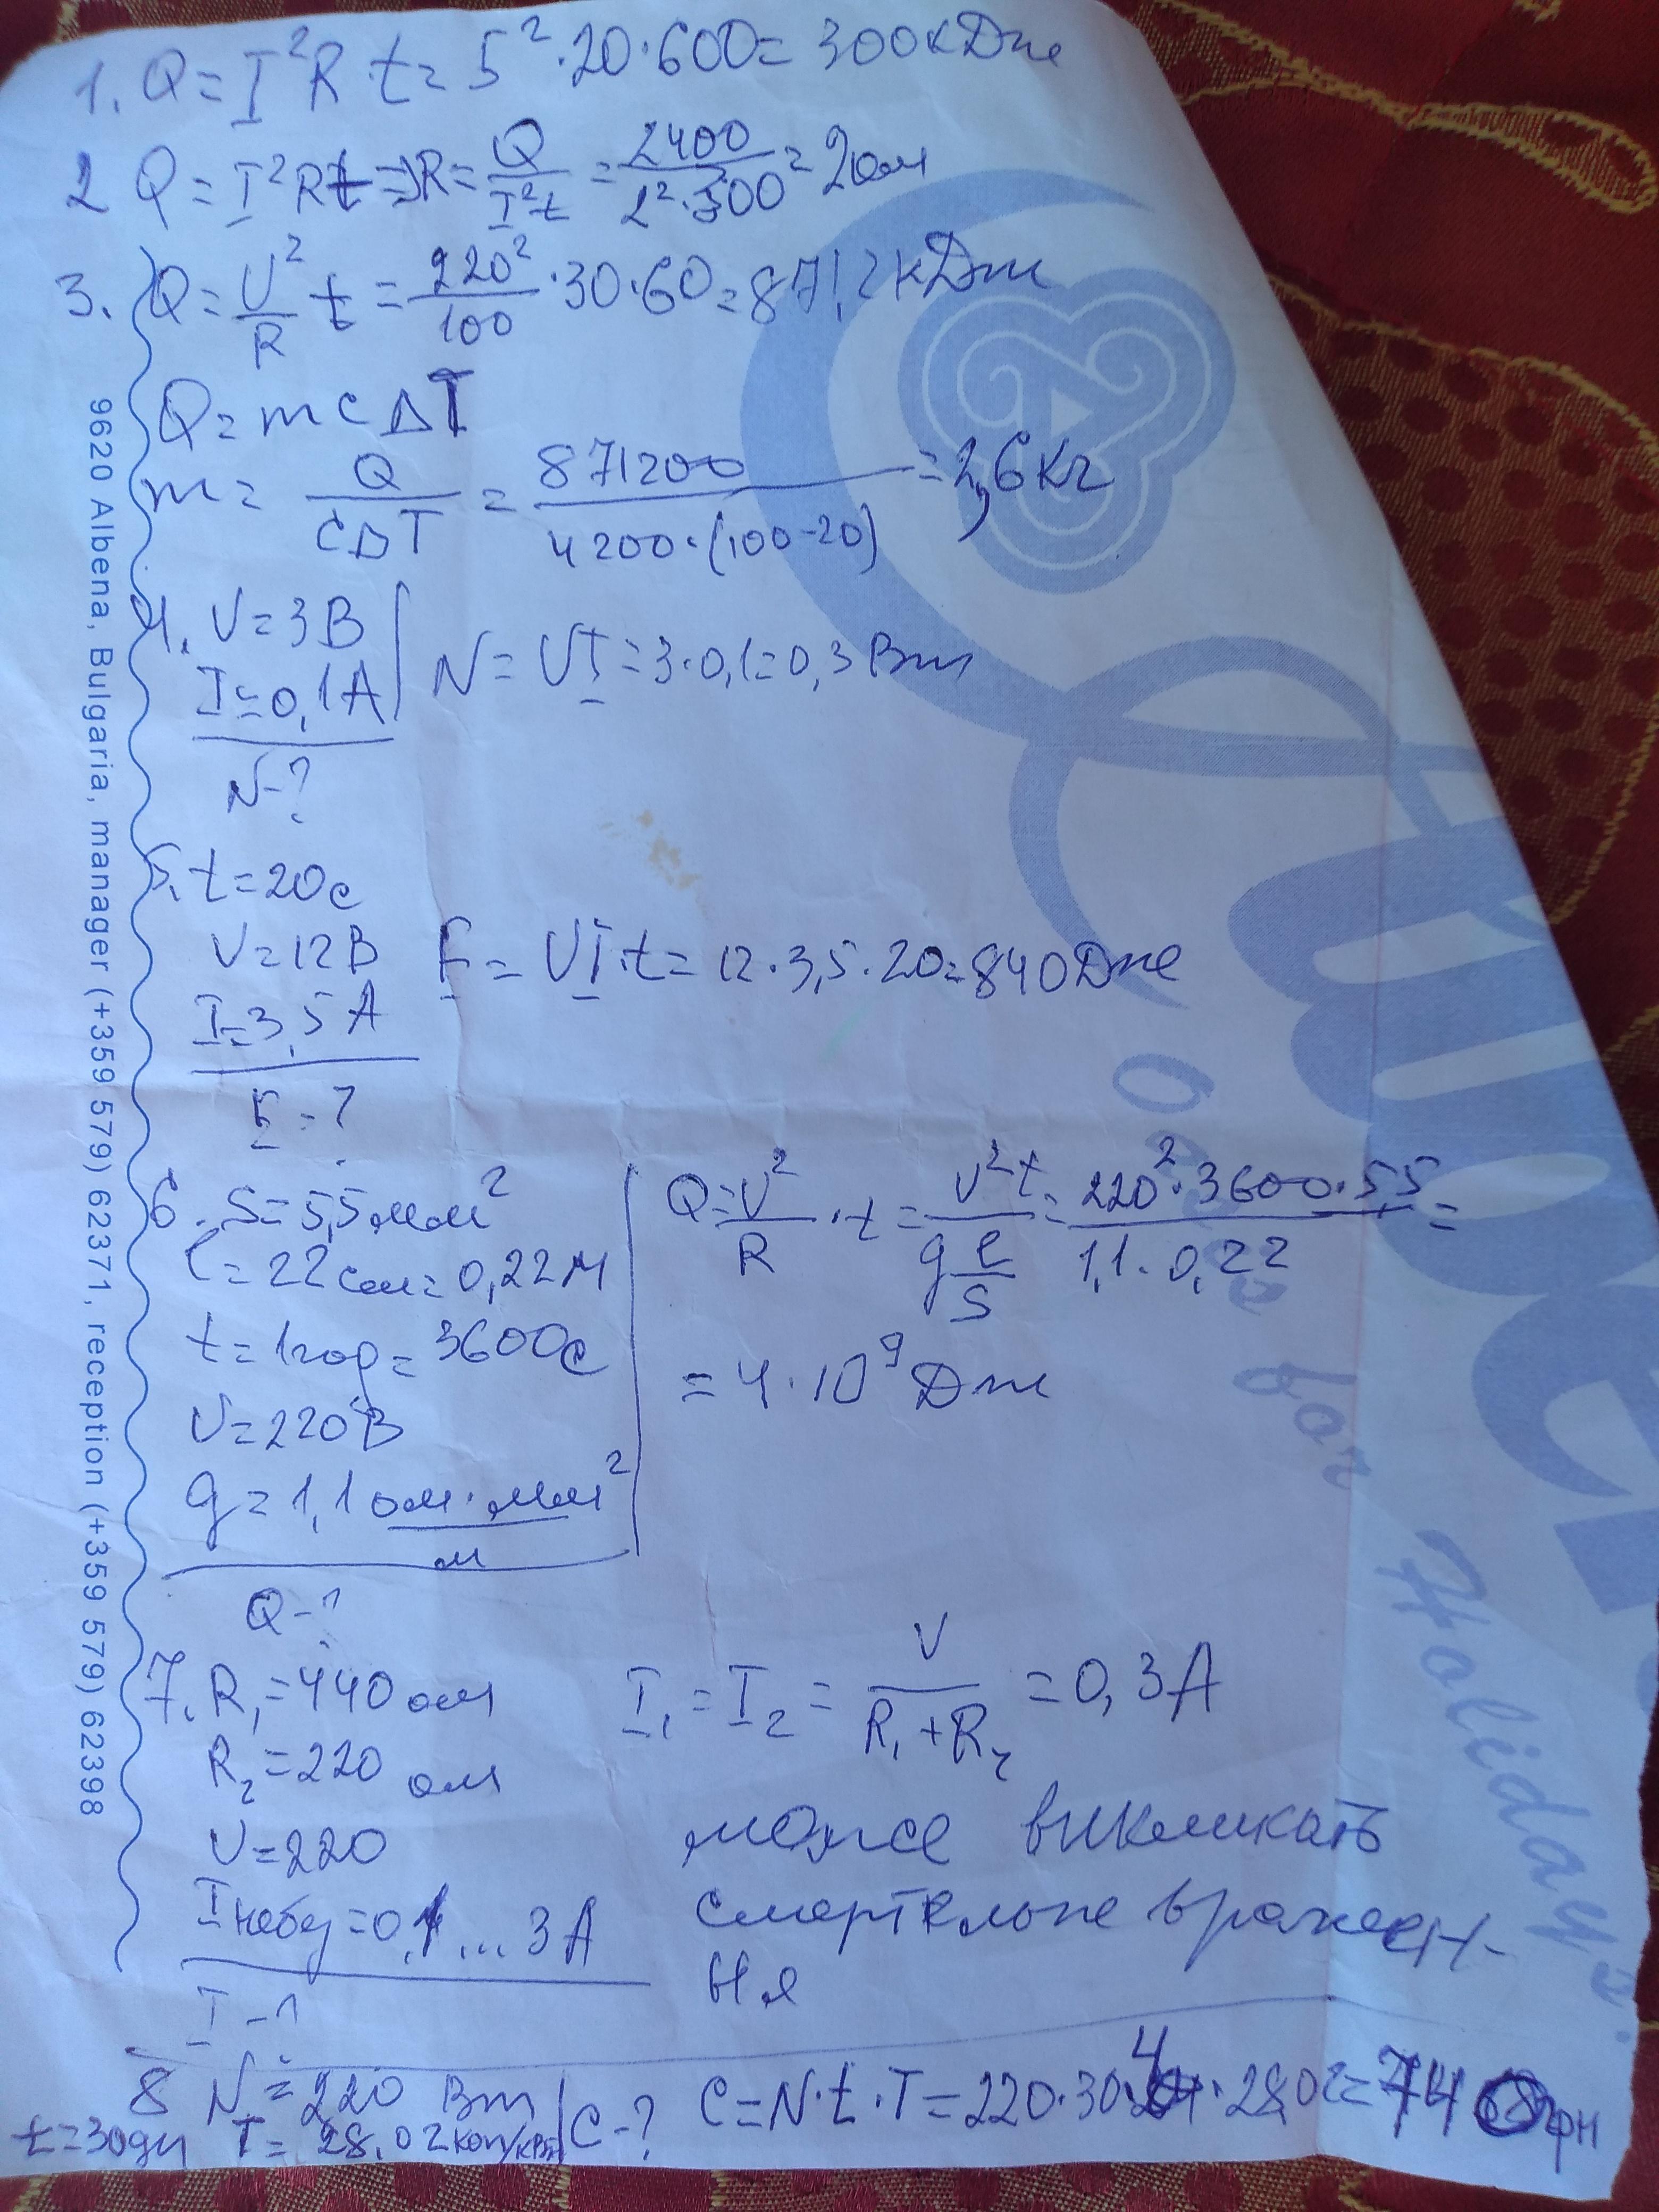 1. Q = I²R t = 5²·20·600 = 300кДж
2 Q = I²Rt => R = Q/I²t = 2400/2²·300 = 2ом
3. Q = U²/R t = 220²/100 ·30·60 = 871,2кДж
Q = mcΔT
m = Q/CΔT = 871200/4200·(100-20) = 2,6кг
4. U = 3В
I = 0,1А
N = UI = 3·0,1 = 0,3Вт
N-?
5. t = 20с
U = 12В
I = 3,5А
E = UI·t = 12·3,5·20 = 840Дж
E - ?
6. S = 5,5мм²
l = 22см = 0,22м
t = 1год = 3600с
U = 220В
g = 1,1 ом·мм²/м
Q - ?
Q = U²/R ·t = U²t/g l/S = 220²·3600·5,5/1,1·0,22 =
= 4·10⁹ Дж
7. R₁ = 440 ом
R₂ = 220 ом
U = 220
I небез = 0,1 ... 3А
I - ?
I₁ = I₂ = U/R₁+R₂ = 0,3А
може викликать
смертельне вражен-
ня
8 N = 220 Вт
t = 30дн T = 28,02коп/кВт
C - ?
C = N·t·T = 220·30·4·28,02 = 740грн
9620 Albena, Bulgaria, manager (+359 579) 62371, reception (+359 579) 62398
for
Holiday